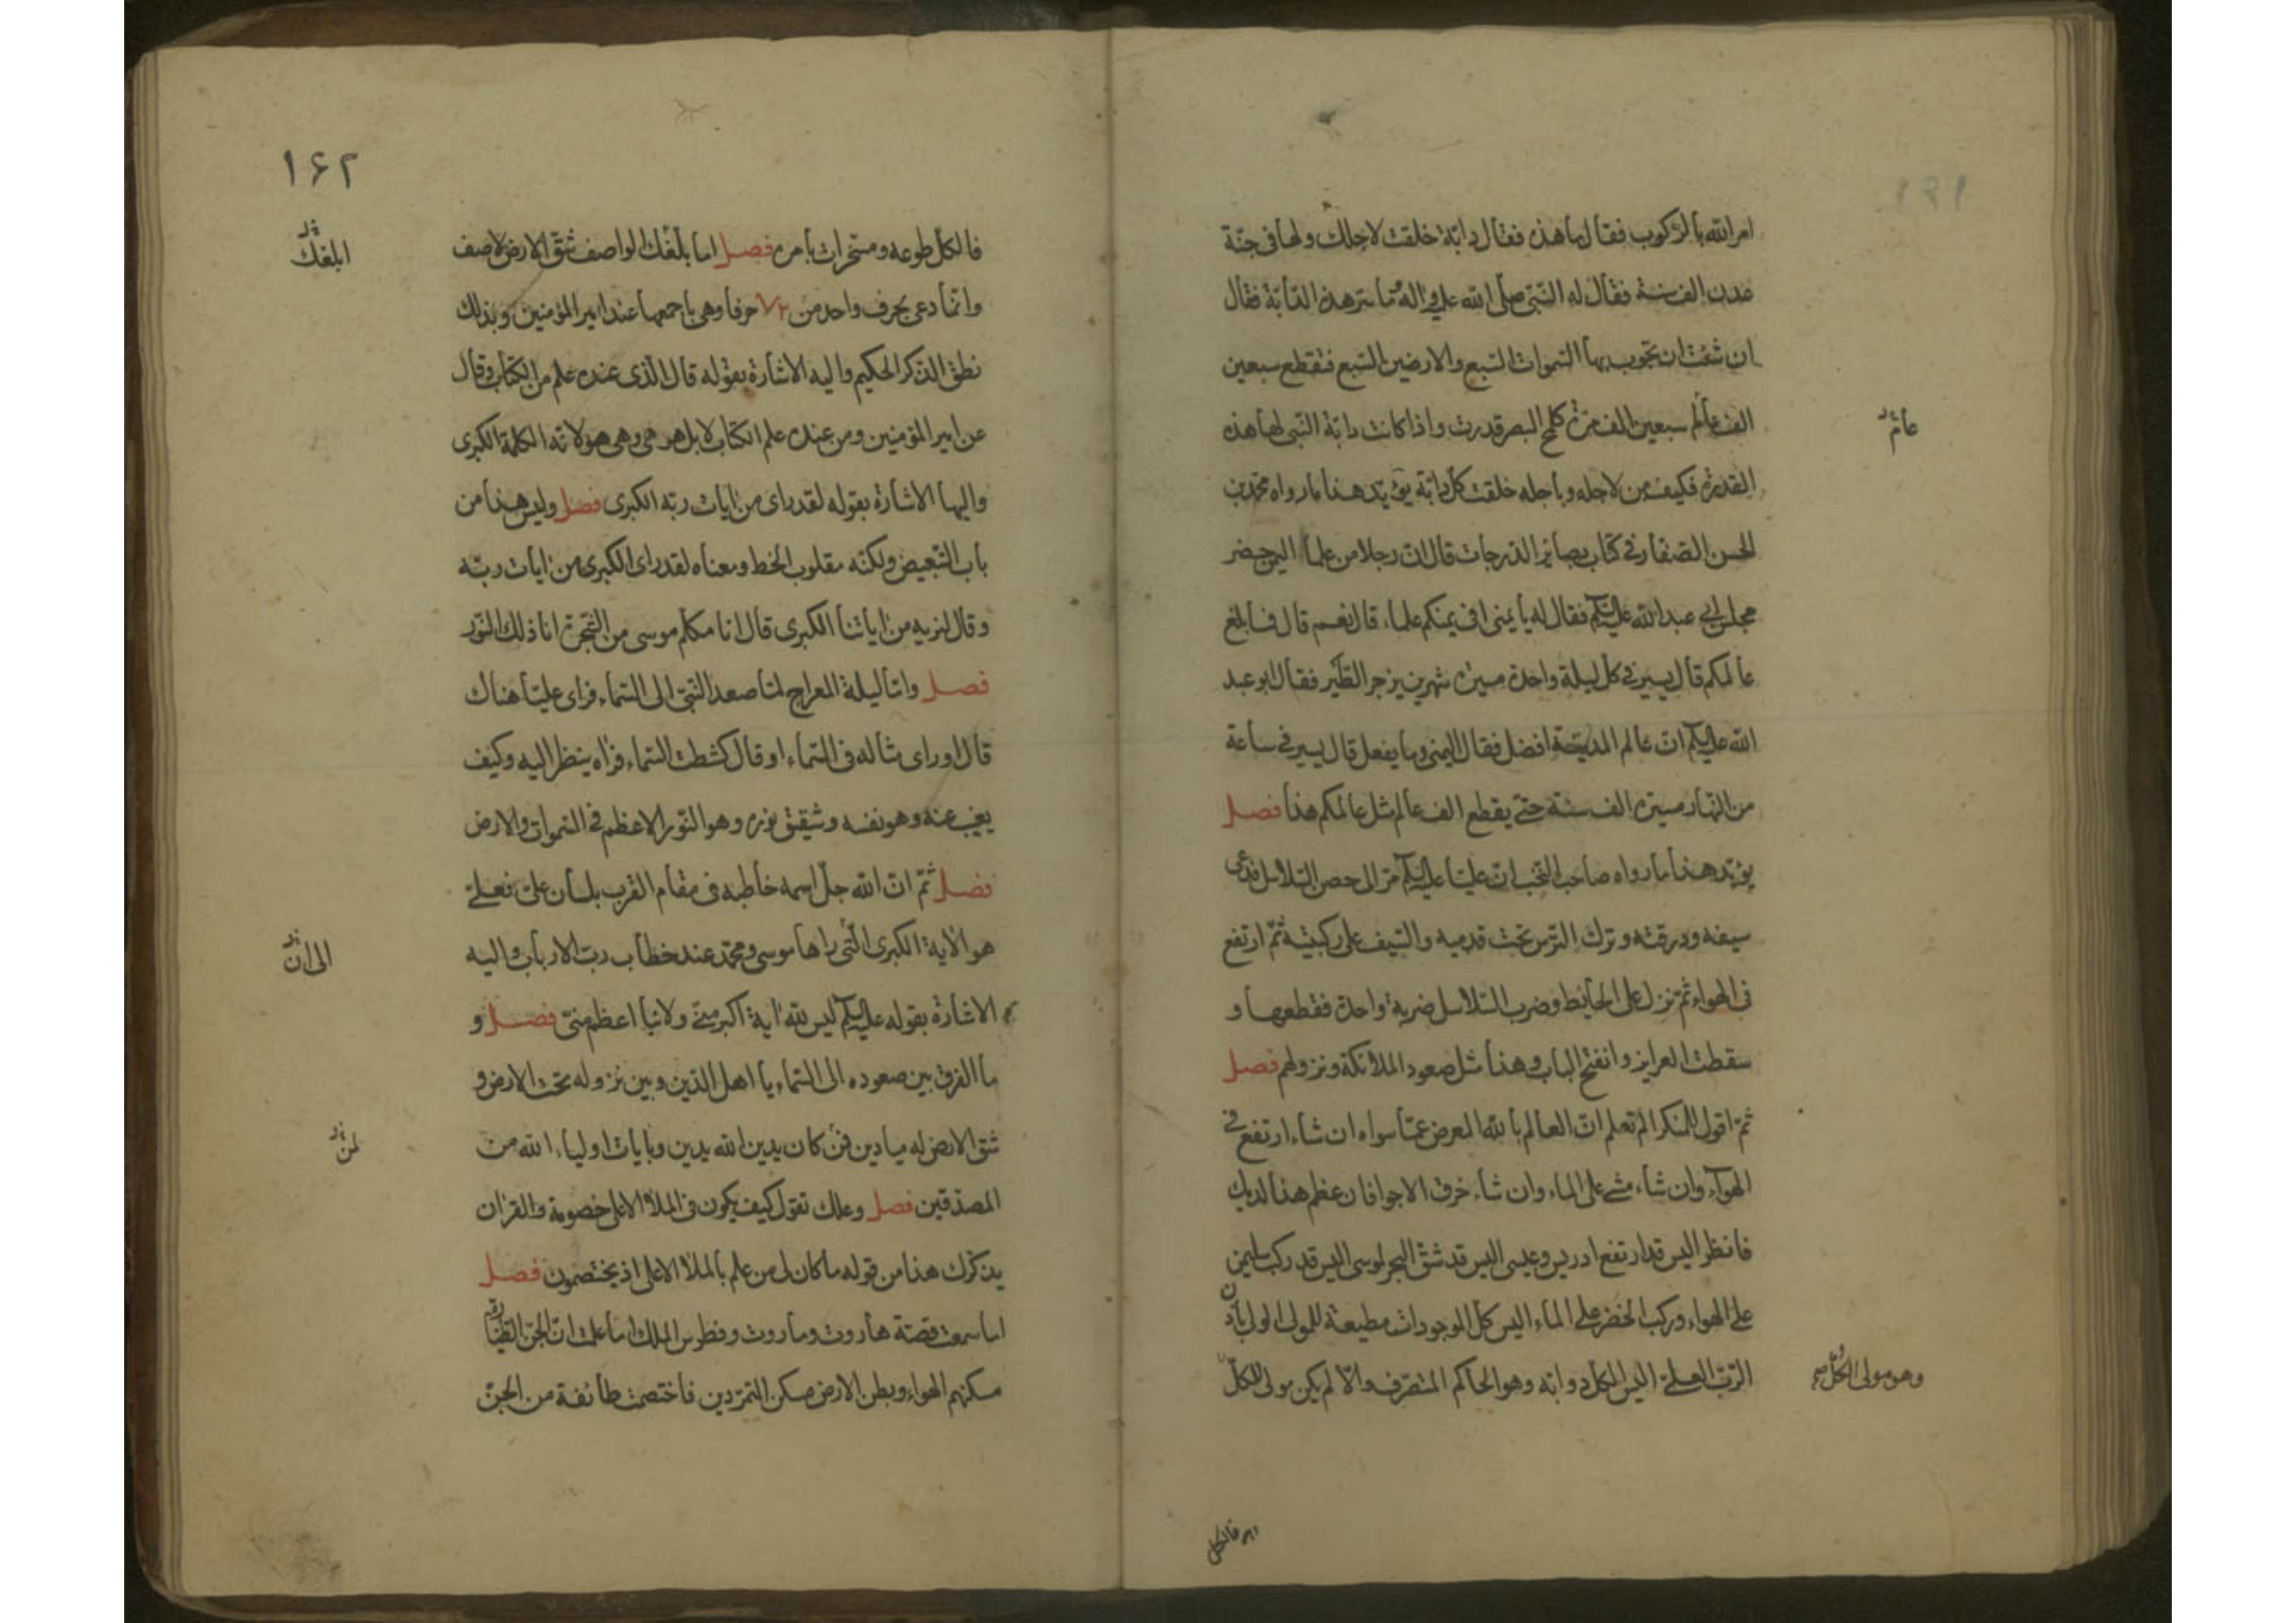 امر الله بالركوب فقال ما هذه فقال دابة خلقت لاجلك ولها فى جنة
عدن الف سنة فقال له النبى صلى الله عليه واله ما سير هذه الدابة فقال
ان شئت ان تجوب بها السموات السبع والارضين السبع فتقطع سبعين
الف عالم سبعين الف مرة كلمح البصر قدرت واذا كانت دابة النبى لها هذه
عالم
القدرة فكيف من لاجله وباجله خلقت كل دابة يؤيد هذا ما رواه محمد بن
الحسن الصفار فى كتاب بصائر الدرجات قال ان رجلا من علماء اليمن حضر
مجلس ابى عبد الله عليه السلام فقال له يا يمنى افى يمنكم علماء قال نعم قال فما بلغ
عالمكم قال يسير فى كل ليلة واحدة مسيرة شهرين يزجر الطير فقال ابو عبد
الله عليه السلام ان عالم المدينة افضل فقال اليمنى وما يفعل قال يسير فى ساعة
من النهار مسيرة الف سنة حتى يقطع الف عالم مثل عالمكم هذا فصل
يؤيد هذا ما رواه صاحب النخب ان عليا عليه السلام مر الى حصن السلاسل فدعى
سيفه ودرقته وترك الترس تحت قدميه والسيف على ركبتيه ثم ارتفع
فى الهواء ثم نزل على الحائط وضرب السلاسل ضربة واحدة فقطعها و
سقطت الغرايز وانفتح الباب وهذا مثل صعود الملائكة ونزولهم فصل
ثم اقول للمنكر الم تعلم ان العالم بالله المعرض عما سواه ان شاء ارتفع فى
الهواء وان شاء مشى على الماء وان شاء خرق الاجواء فان عظم هذا لديك
فانظر اليس قد ارتفع ادريس وعيسى اليس قد شق البحر لموسى اليس قد ركب سليمن
على الهواء وركب الخضر على الماء اليس كل الموجودات مطيعة للمولى الولى باذن
الرب العلى اليس الكل دوابه وهو الحاكم المتصرف والا لم يكن مولى للكل
وهو مولى الكل
فالكل
١۶٢
فالكل طوعه ومسخرات بامره فصل اما بلغك الواصف شق الارض لاصف
ابلغك
وانما دعى بحرف واحد من ٧٢ حرفا وهى باجمعها عند امير المؤمنين وبذلك
نطق الذكر الحكيم واليه الاشارة بقوله قال الذى عنده علم من الكتاب وقال
عن امير المؤمنين ومن عنده علم الكتاب لا بل هو هى وهى هو لانه الكلمة الكبرى
واليها الاشارة بقوله لقد راى من ايات ربه الكبرى فصل وليس هذا من
باب التبعيض ولكنه مقلوب الخط ومعناه لقد راى الكبرى من ايات ربه
وقال لنريه من اياتنا الكبرى قال انا مكلم موسى من الشجرة انا ذلك النور
فصل واما ليلة المعراج لما صعد النبى الى السماء فراى عليا هناك
قال او راى مثاله فى السماء او قال كشطت السماء فراه ينظر اليه وكيف
يغيب عنه وهو نفسه وشقيق نوره وهو النور الاعظم فى السموات والارض
فصل ثم ان الله جل اسمه خاطبه فى مقام القرب بلسان على فعلى
هو الاية الكبرى التى راها موسى ومحمد عند خطاب رب الارباب واليه
الى ان
الاشارة بقوله عليه السلام ليس لله اية اكبر منى ولا نبا اعظم منى فصل و
ما الفرق بين صعوده الى السماء يا اهل الدين وبين نزوله تحت الارض و
شق الارض له ميادين فمن كان يدين الله يدين وبايات اولياء الله من
لمن
المصدقين فصل وعلك تقول كيف يكون فى الملاء الاعلى خصومة والقران
يذكرك هذا من قوله ما كان لى من علم بالملا الاعلى اذ يختصمون فصل
اما سمعت قصة هاروت وماروت وفطرس الملك اما علمت ان الجن الطيارة
مسكنهم الهواء وبطن الارض مسكن المتمردين فاختصمت طائفة من الجن